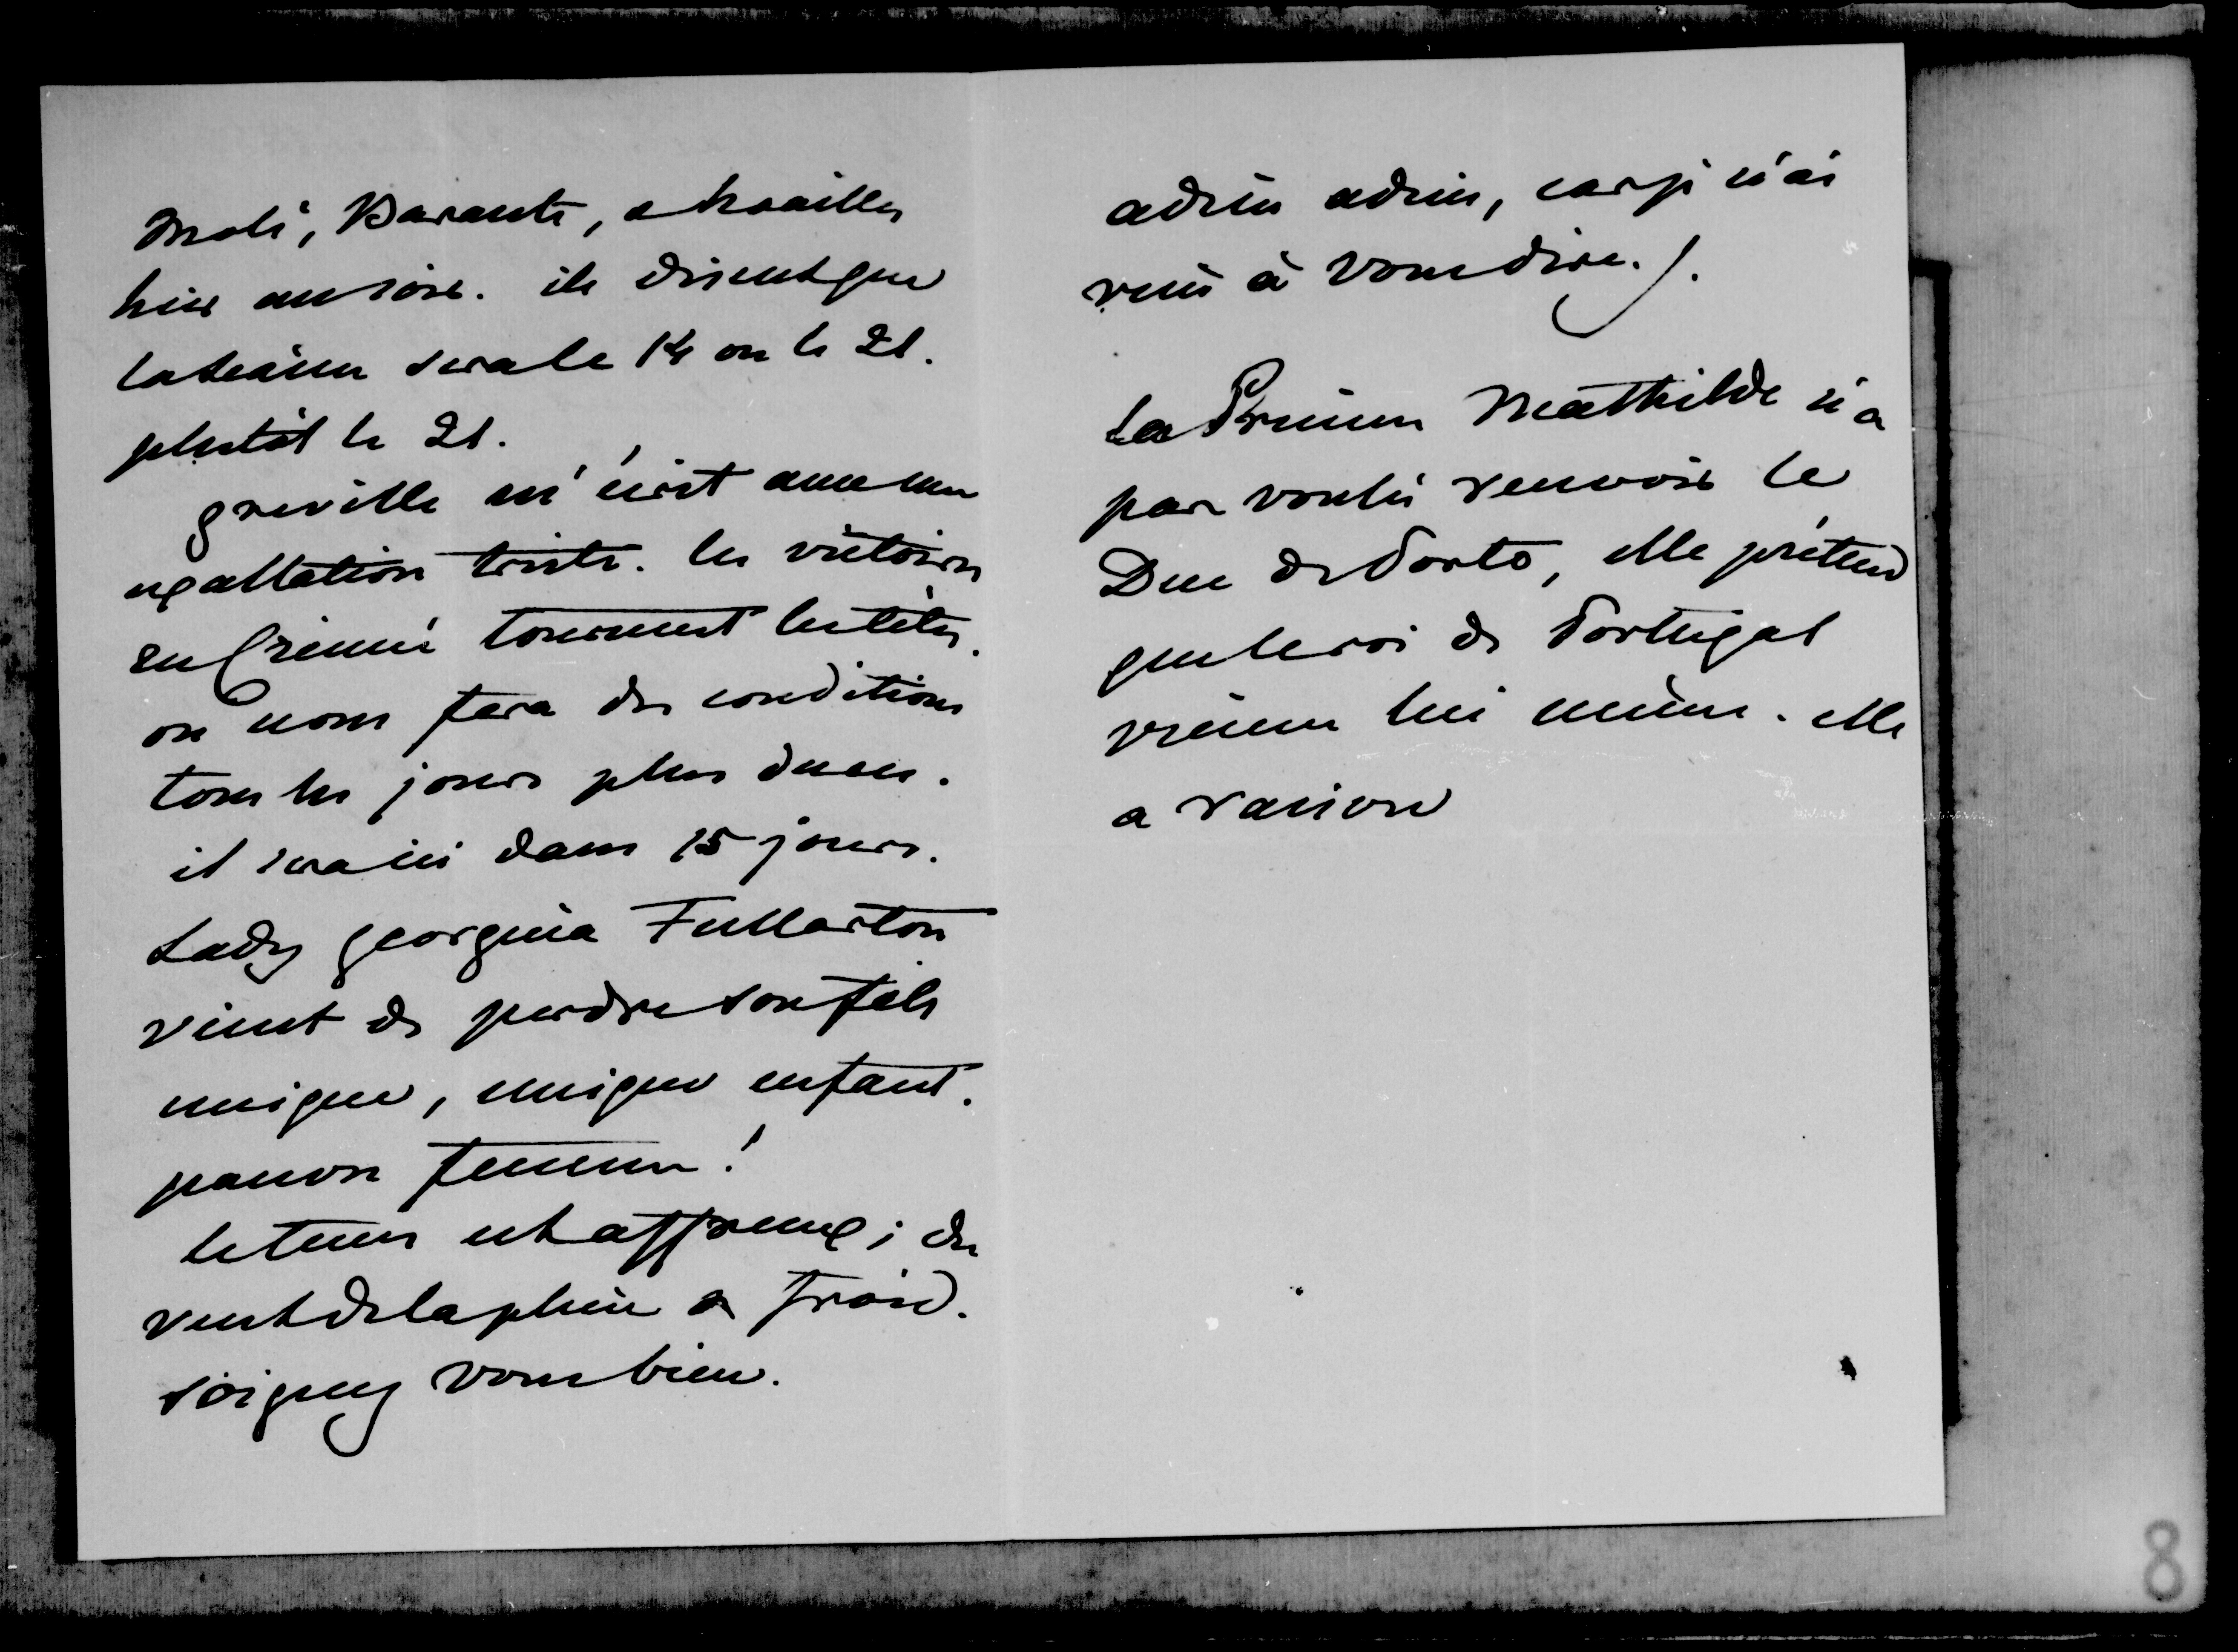 Molé, Barante, & Noailles
hier au soir. ils disent que
la séance sera le 14 ou le 21.
plutôt le 21.
greville m'écrit avec une
exaltation triste. les victoires
en Crimée tournent les têtes.
on nous fera des conditions
tous les jours plus dures.
il sera ici dans 15 jours.
Lady georgina Fullarton
vient de perdre son fils
unique, unique enfant.
pauvre femme!
le tems est affreux; du
vent de la pluie & froid.
soignez vous bien.
adieu adieu, car je n'ai
rien à vous dire.
La Princesse Mathilde n'a
pas voulu recevoir le
Duc de Porto, elle prétend
que le roi de Portugal
vienne lui même. elle
a raison
8